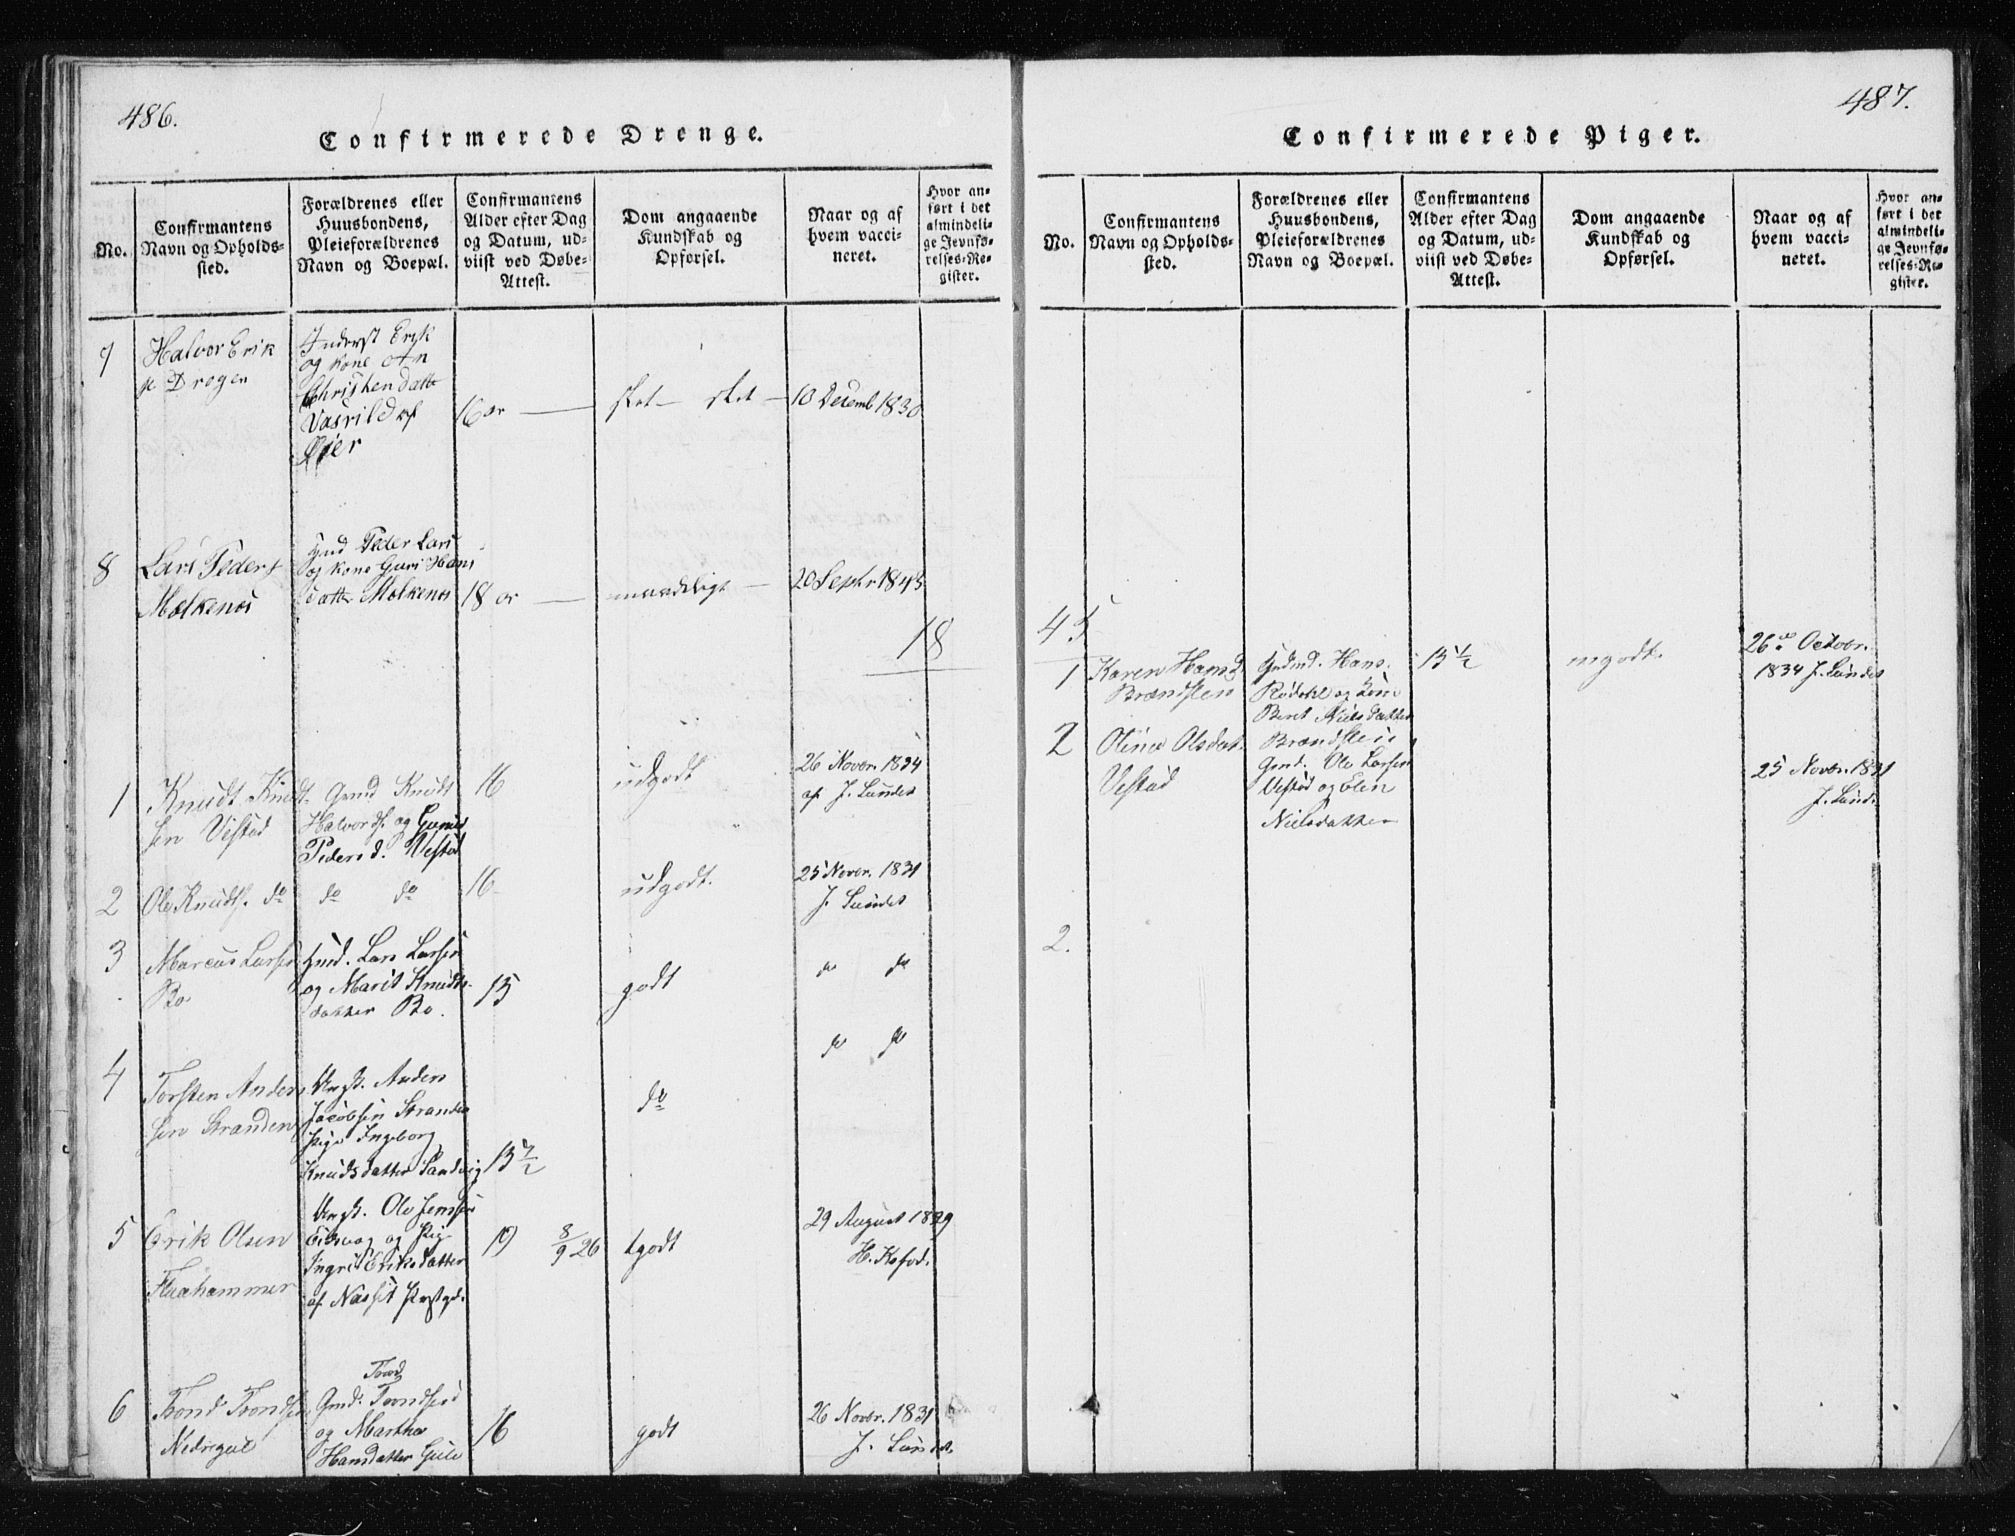 486.
Confirmerede Drenge.
No.
Confirmantens
Navn og Opholds-
sted.
Forældrenes eller
Huusbondens,
Pleieforældrenes
Navn og Boepæl.
Confirmantens
Alder efter Dag
og Datum, ud-
viist ved Døbe-
Attest.
Dom angaaende
Kundskab og
Opførsel.
Naar og af
hvem vacci-
neret.
Hvor an-
ført i det
almindeli-
ge Jevnfø-
relses-Re-
gister.
7
Halvor Erik
Drogen
Inderst Erik
og kone An
Christendatt
af
16 ar
slet slet
10 Decemb 1830
8
Lars Peders
Mælkenes
Gmd Peder Lars
og kone Guri Hans
datt Mælkenes
18 ar
maadeligt
20 Septr 1843
18
1
Knudt Knudt-
sen Vestad
Gmd Knudt
Halvords. og Gunild
Pedersd. Vestad
16
udgodt
26 Novbr. 1834
af J. Lundet
2
Ole Knuds. do
do do
16
udgodt.
25 Novbr. 1831
J. Lundet
3
Marcus Larsen
Bo
Gmd. Lars Larsen
og Marit Knuds-
datter Bo.
15
godt
do do
4
Torsten Anders
sen Stranden
Ungk. Anders
Jacobsen Stranden
Pige Ingeborg
Knudsdatter Sandvig
15 1/2
do
do do
5
Erik Olsen
Ungk. Ole Jensen
Eidsvag og Pige
Ingrid Eriksdatter
af Nasset Præstgd.
19 8/9 26
tgodt
29 August 1829
H. Kofod.
6
Trond Trondsen
Trond
Gmd. Trondsen
og Martha
Hansdatter
16
godt
26 Novbr. 1831
J. Lundet
487.
Confirmerede Piger.
No.
Confirmantens
Navn og Opholds-
sted.
Forældrenes eller
Huusbondens,
Pleieforældrenes
Navn og Boepæl.
Confirmantens
Alder efter Dag
og Datum, ud-
viist ved Døbe-
Attest.
Dom angaaende
Kundskab og
Opførsel.
Naar og af
hvem vacci-
neret.
Hvor an-
ført i det
almindeli-
ge Jevnfø-
relses-Re-
gister.
45
1
Karen Hansd.
Brændsten
Gmd. Hans
og Kone
Beret Nielsdatter
Brændsten
15 1/2
mgodt.
26de Octobr.
1834 J. Lundet
2
Olina Olsdat.
Vestad
Gmd. Ole Larsen
Vestad og Elen
Nielsdatter
25 Novbr. 1831
J. Lund.
2.